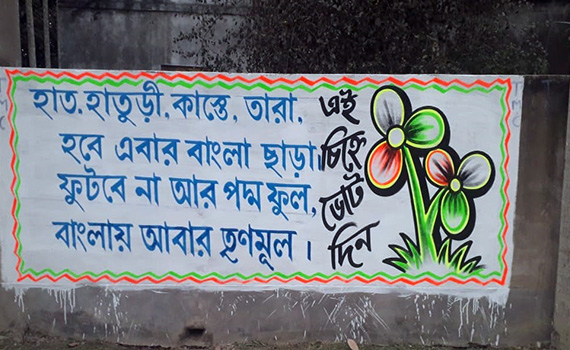 হাত, হাতুড়ী, কাস্তে, তারা,
হবে এবার বাংলা ছাড়া।
ফুটবে না আর পদ্ম ফুল,
বাংলায় আবার তৃণমূল।
এই
চিহ্নে
ভোট
দিন